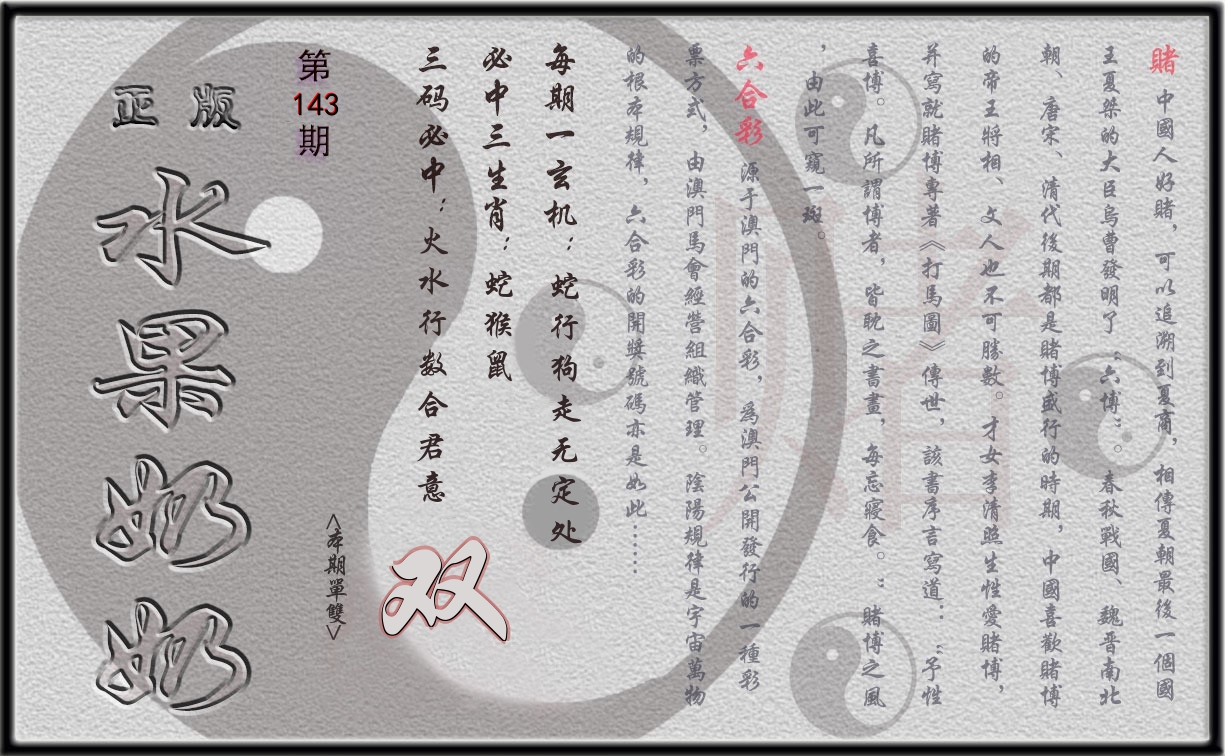 賭 中國人好賭，可以追溯到夏商，相傳夏朝最後一個國
王夏桀的大臣烏曹發明了“六博”。春秋戰國、魏晋南北
朝、唐宋、清代後期都是賭博盛行的時期，中國喜歡賭博
的帝王將相、文人也不可勝數。才女李清照生性愛賭博，
并寫就賭博專著《打馬圖》傳世，該書序言寫道：“予性
喜博。凡所謂博者，皆耽之晝晝，每忘寢食。”賭博之風
，由此可窺一斑。
六合彩 源于澳門的六合彩，爲澳門公開發行的一種彩
票方式，由澳門馬會經營組織管理。陰陽規律是宇宙萬物
的根本規律，六合彩的開獎號碼亦是如此……
每期一玄机：蛇行狗走无定处
必中三生肖：蛇猴鼠
三码必中：火水行数合君意
双
<本期單雙>
第
143
期
正版
水果奶奶
賭